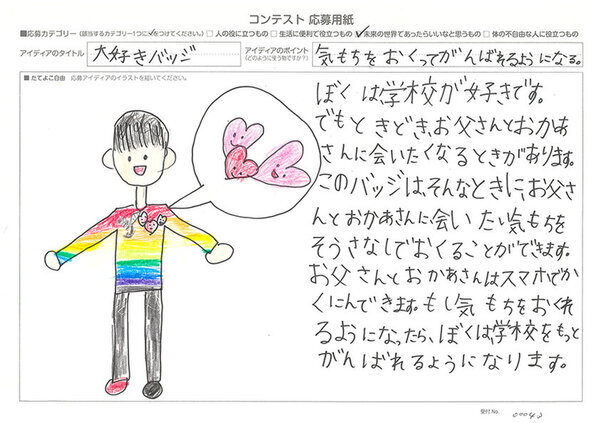 コンテスト 応募用紙
■応募カテゴリー(該当するカテゴリー1つに✓をつけてください。) □人の役に立つもの □生活に便利で役立つもの ☑未来の世界であったらいいなと思うもの □体の不自由な人に役立つもの
アイディアのタイトル 大好きバッジ アイディアのポイント(どのように使う物ですか?) 気もちをおくってがんばれるようになる。
■たてよこ自由 応募アイディアのイラストを描いてください。
ぼくは学校が好きです。
でもときどき、お父さんとおかあ
さんに会いたくなるときがあります。
このバッジは、そんなときに、お父さ
んとおかあさんに会いたい気もちを
そうさなしでおくることができます。
お父さんとおかあさんはスマホでか
くにんできます。もし気もちをおくれ
るようになったら、ぼくは、学校をもっと
がんばれるようになります。
受付No. 00042